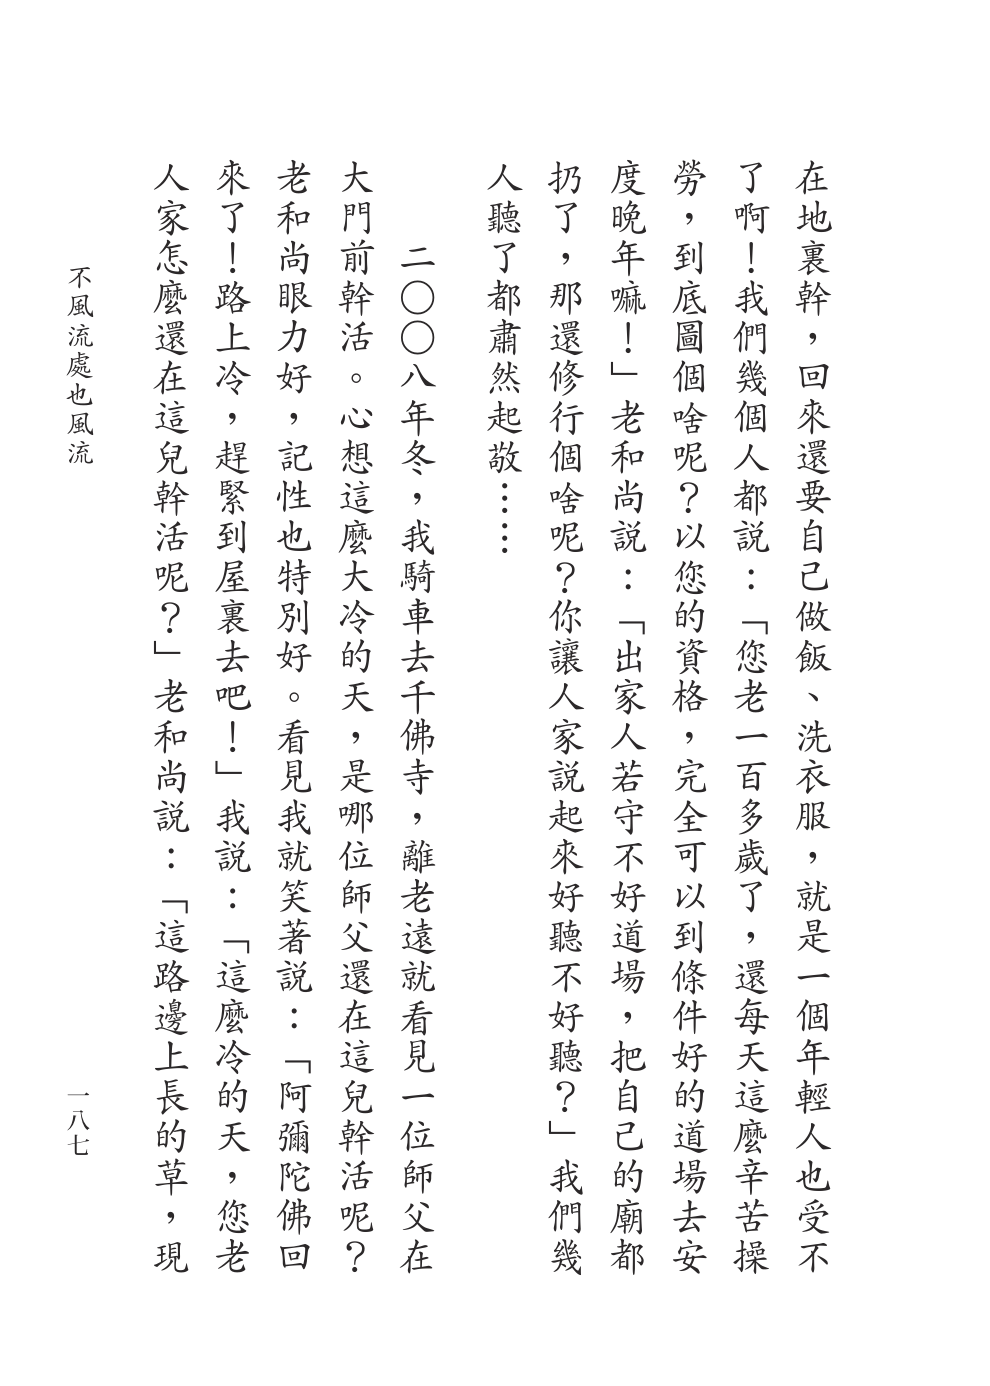 在地裏幹，回來還要自己做飯、洗衣服，就是一個年輕人也受不
了啊！我們幾個人都説：「您老一百多歲了，還每天這麼辛苦操
勞，到底圖個啥呢？以您的資格，完全可以到條件好的道場去安
度晚年嘛！」老和尚説：「出家人若守不好道場，把自己的廟都
扔了，那還修行個啥呢？你讓人家説起來好聽不好聽？」我們幾
人聽了都肅然起敬……
二〇〇八年冬，我騎車去千佛寺，離老遠就看見一位師父在
大門前幹活。心想這麼大冷的天，是哪位師父還在這兒幹活呢？
老和尚眼力好，記性也特別好。看見我就笑著説：「阿彌陀佛回
來了！路上冷，趕緊到屋裏去吧！」我説：「這麼冷的天，您老
人家怎麼還在這兒幹活呢？」老和尚説：「這路邊上長的草，現
不風流處也風流
一八七